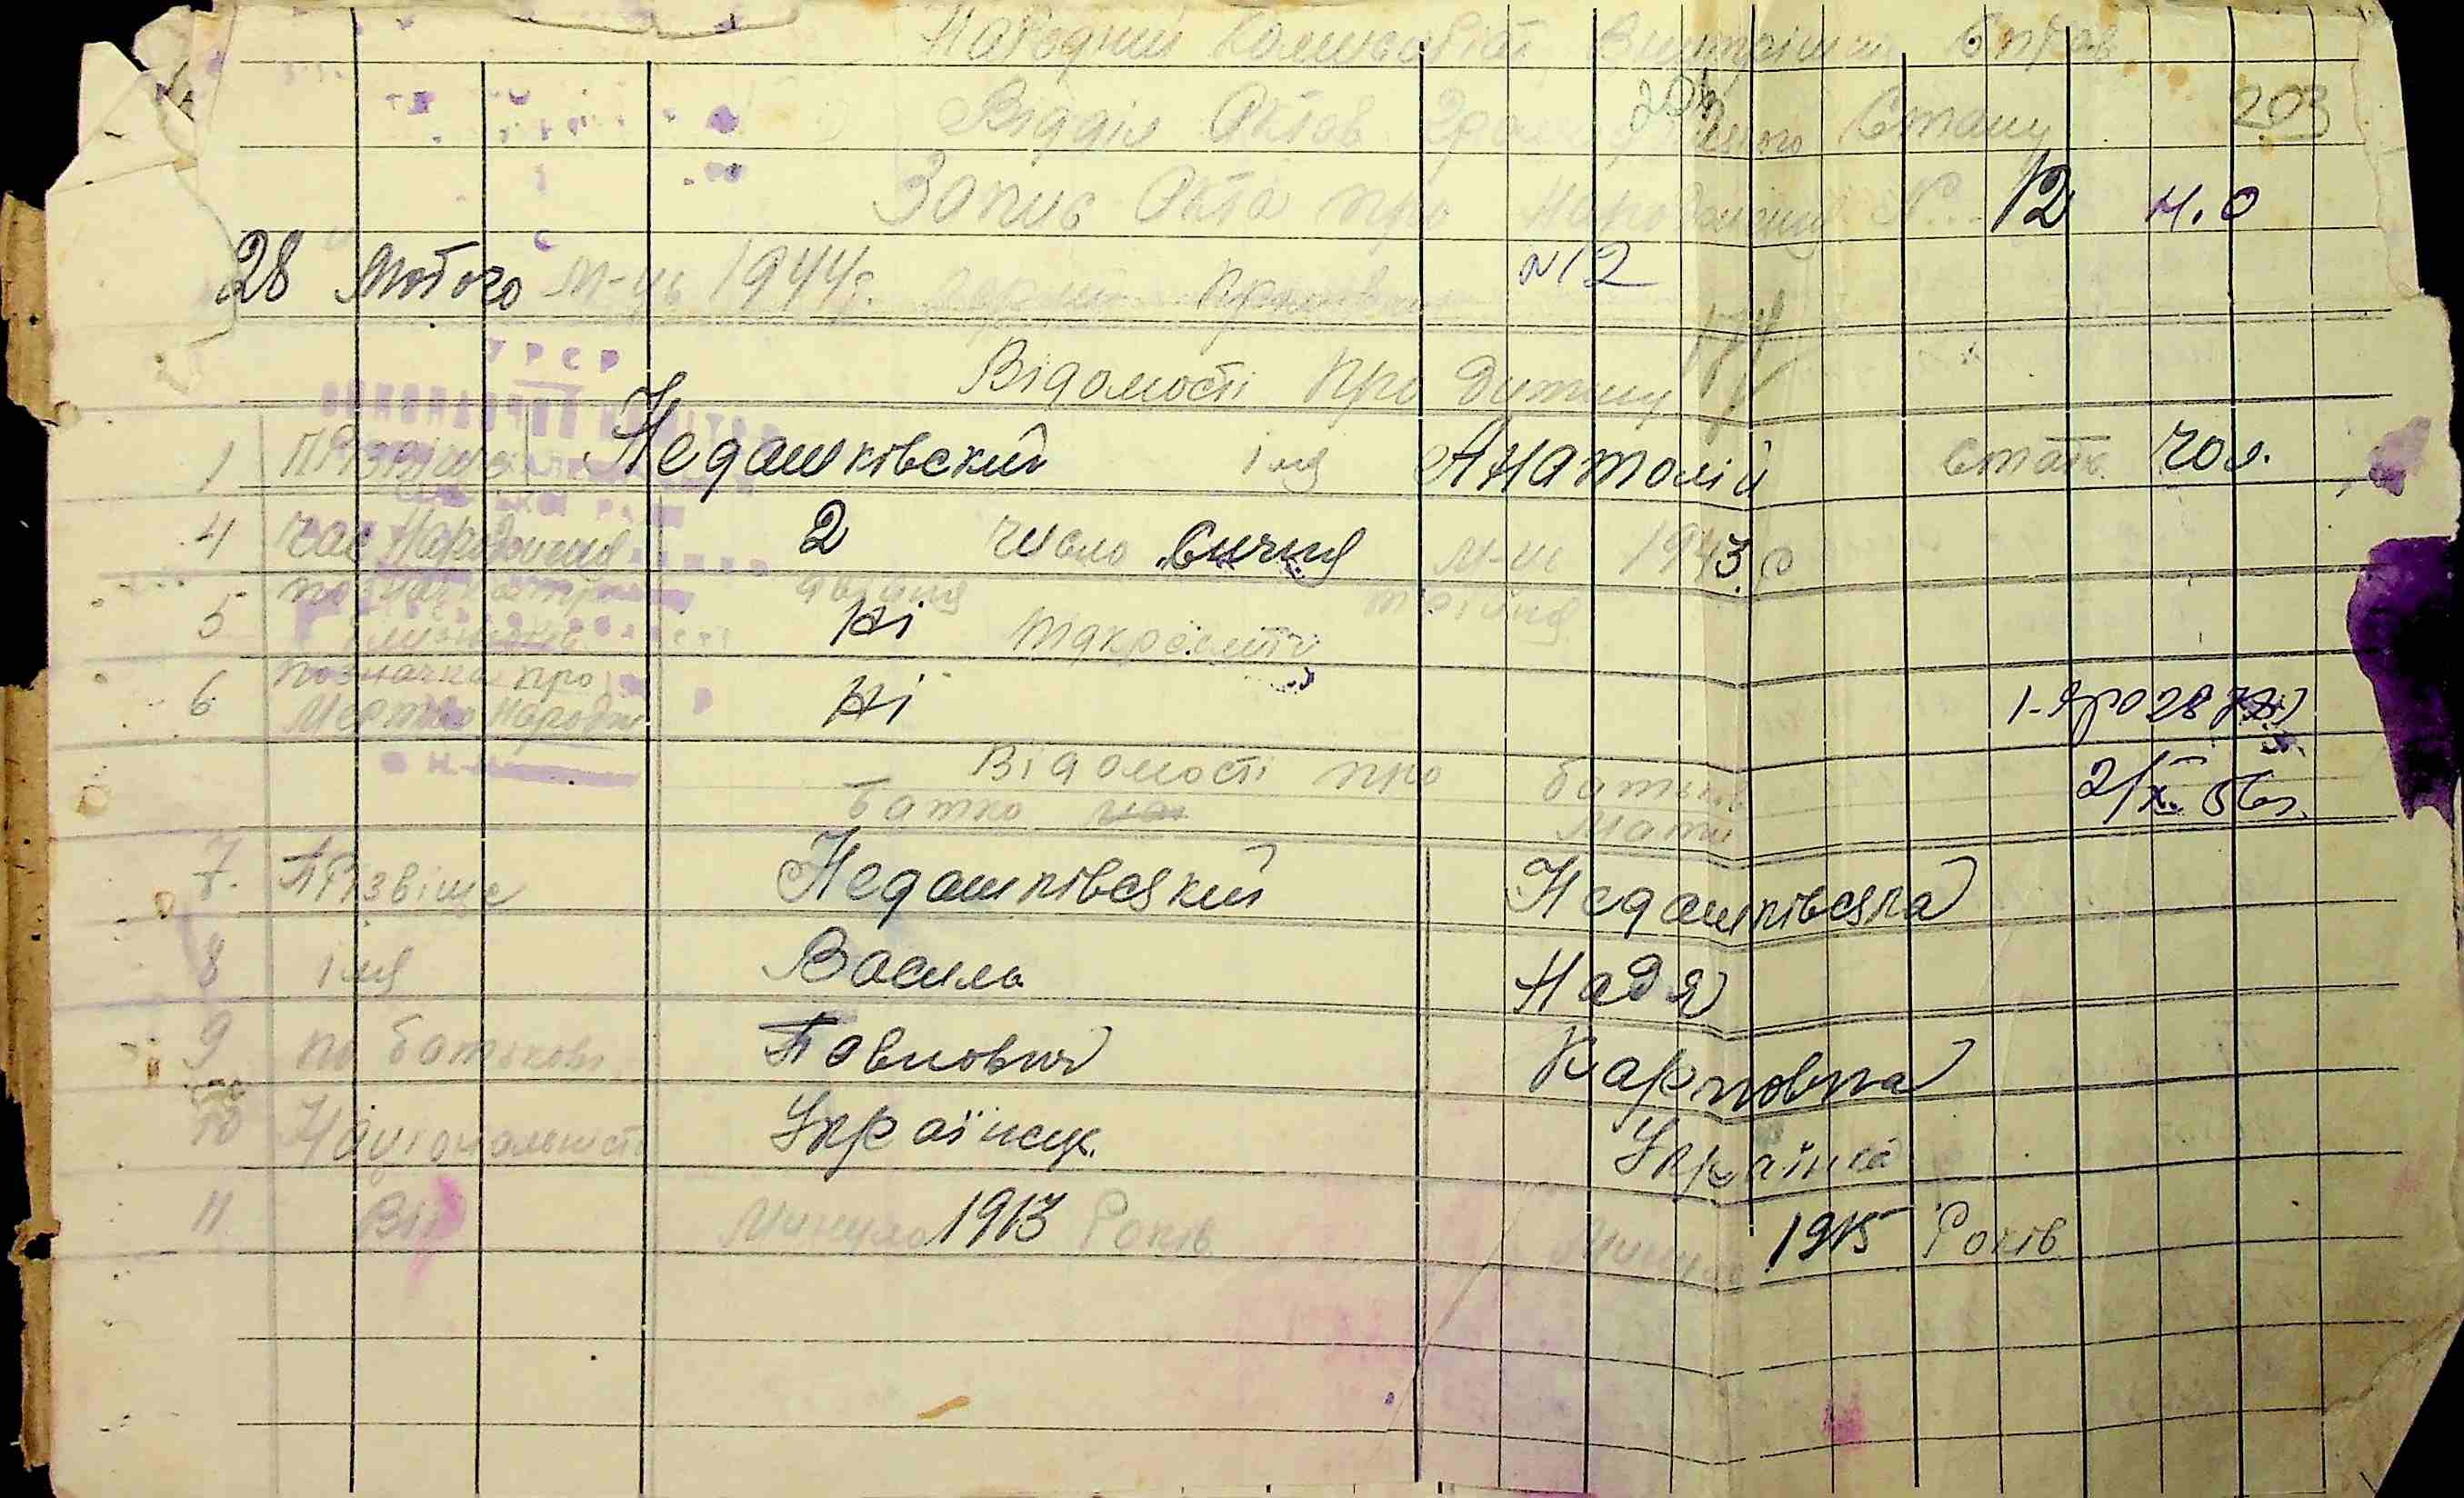 Народний Комисаріат Внутрішн. Справ
Відділ Актов Стану 203
Запис Акта про Народження N 12 н.о
28 лютого м-ць 1944р. N12
УРСР
Відомості про дитину
1 Прізвіще Недашковский імя Анатолій стать чол.
4 час Народження 2 число сичня м-ця 1943 р
5 Ні підкреслить
6 позначка про Ні
мертво народж 1-яро 28
Відомості про батьків
батко Мати
7. Прізвіще Недашківський Недашківська
8 імя Василь Надя
9 по батькові Павлович Карповна
10 Національність Українец. Українка
11 Вік Минуло 1913 Років Минуло 1915 Років